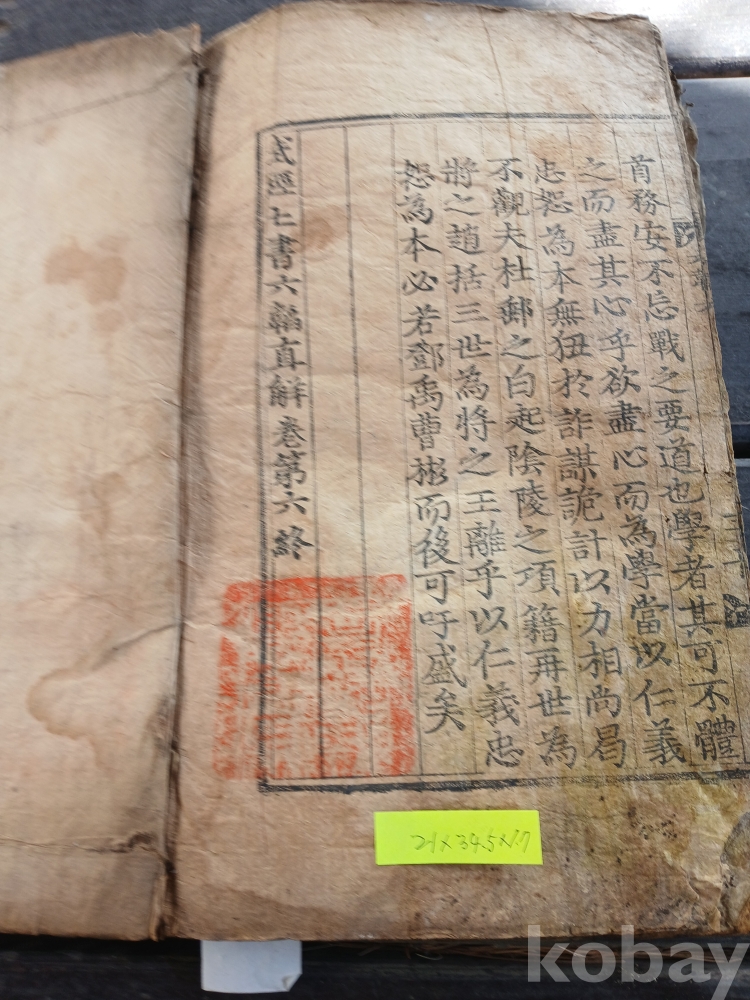 首務安不忘戰之要道也學者其可不體
之而盡其心乎欲盡心而為學當以仁義
忠恕為本無狃於詐謀詭計以力相尚曷
不觀夫杜郵之白起陰陵之項籍再世為
將之趙括三世為將之王離乎以仁義忠
恕為本必若鄧禹曹彬而後可吁盛矣
武經七書六韜直解卷第六終
21×34.5×1.7
kobay